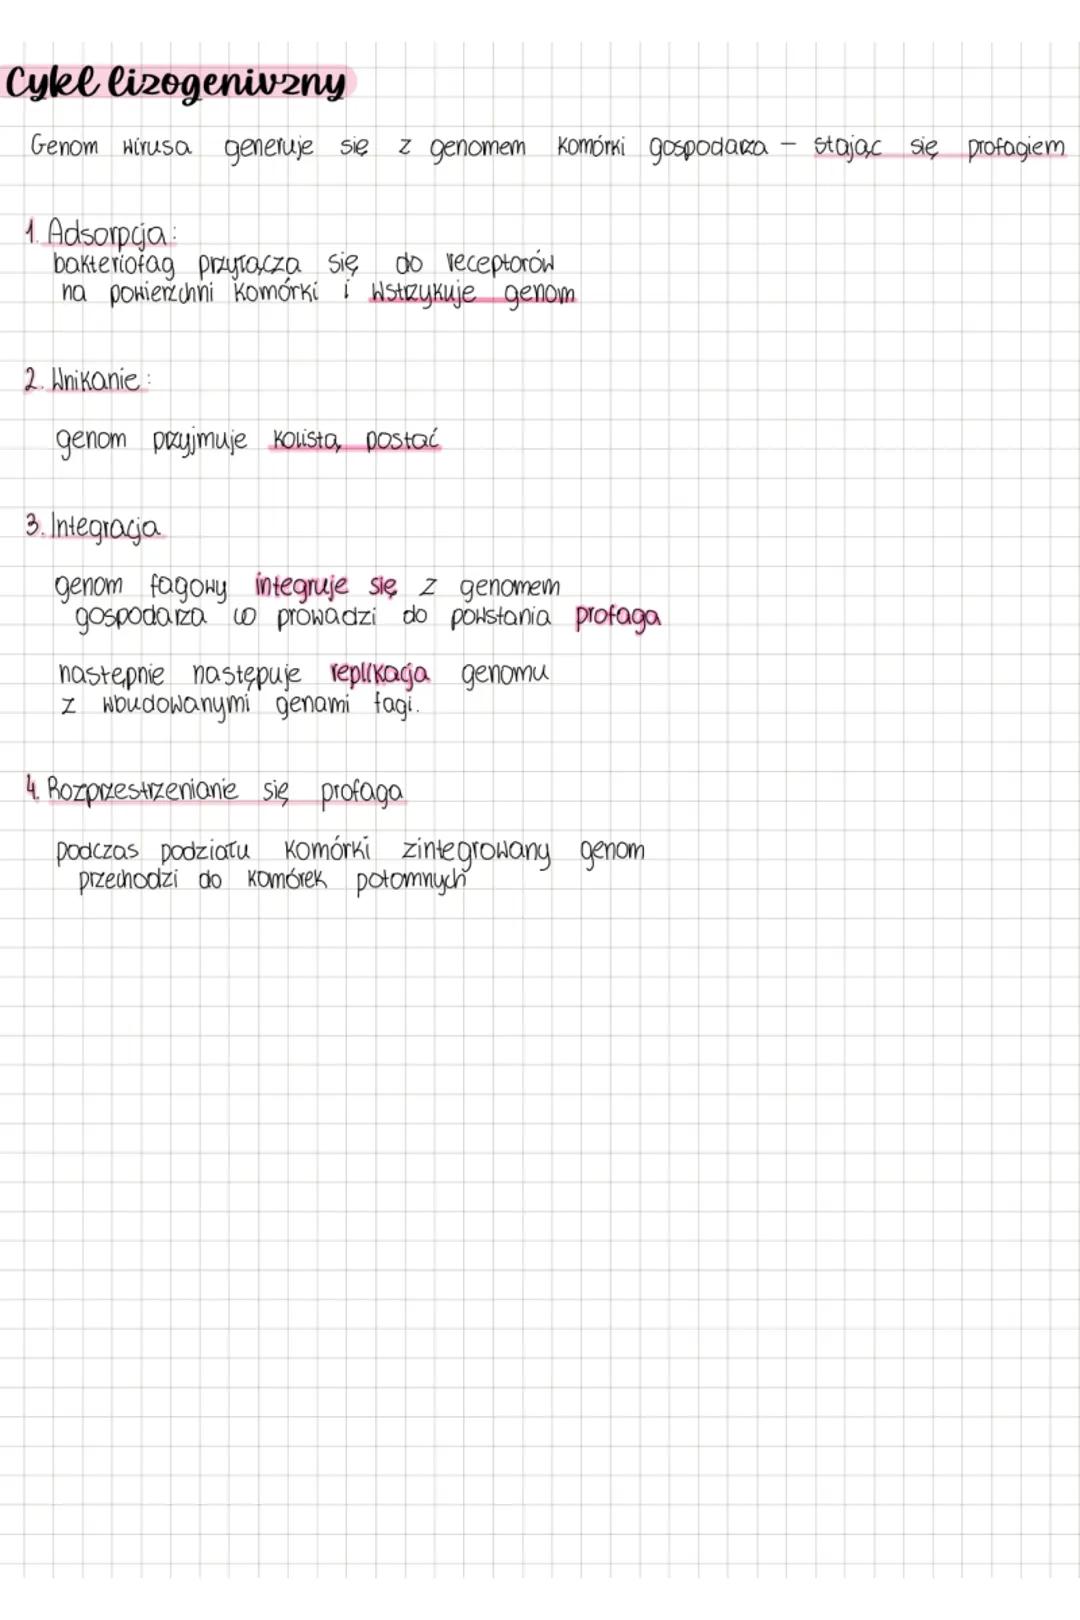 Cykl lizogenivzny
Genom wirusa generuje się z genomem komórki gospodarza – stając się profagiem
1. Adsorpcja:
bakteriofag przyłącza się do receptorów
na powierzchni komórki i wstrzykuje genom
2. Wnikanie:
genom przyjmuje kolistą postać
3. Integracja
genom fagowy integruje się z genomem
gospodarza co prowadzi do powstania profaga
następnie następuje replikacja genomu
z wbudowanymi genami fagi.
4. Rozprzestrzenianie się profaga
podczas podziału komórki zintegrowany genom
przechodzi do komórek potomnych